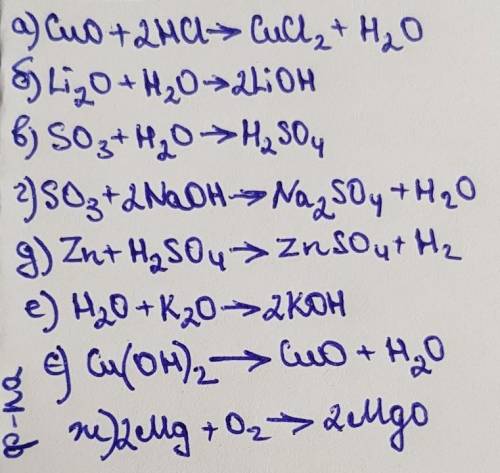 а) CuO + 2HCl → CuCl₂ + H₂O
б) Li₂O + H₂O → 2LiOH
в) SO₃ + H₂O → H₂SO₄
г) SO₃ + 2NaOH → Na₂SO₄ + H₂O
д) Zn + H₂SO₄ → ZnSO₄ + H₂
е) H₂O + K₂O → 2KOH
є) Cu(OH)₂ → CuO + H₂O
ж) 2Mg + O₂ → 2MgO